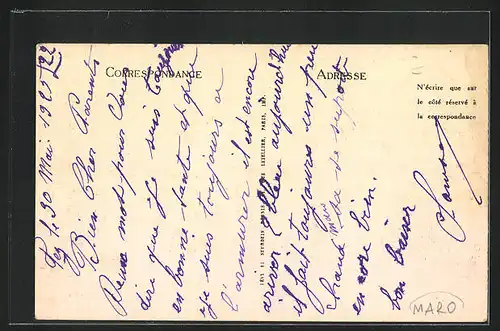 CORRESPONDANCE
ADRESSE
N'écrire que sur
le côté réservé à
la correspondance
30 Mai 1925
Bien Cher Parents
Deux mot pour Vous
dire que Je suis
en bonne santé et que
Je suis toujours a
l'armurer il est encore
ariver aujourd'hui
il fait toujours un peu
chaud mas sa se suporte
encore bien.
bon baiser
MARO